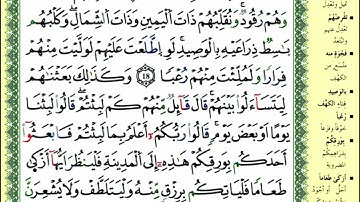 وَهُمْ رُقُودٌ ۚ وَنُقَلِّبُهُمْ ذَاتَ الْيَمِينِ وَذَاتَ الشِّمَالِ ۖ وَكَلْبُهُم
بَاسِطٌ ذِرَاعَيْهِ بِالْوَصِيدِ ۚ لَوِ اطَّلَعْتَ عَلَيْهِمْ لَوَلَّيْتَ مِنْهُمْ
فِرَارًا وَلَمُلِئْتَ مِنْهُمْ رُعْبًا ١٨ وَكَذَٰلِكَ بَعَثْنَاهُمْ
لِيَتَسَاءَلُوا بَيْنَهُمْ ۚ قَالَ قَائِلٌ مِّنْهُمْ كَمْ لَبِثْتُمْ ۖ قَالُوا لَبِثْنَا
يَوْمًا أَوْ بَعْضَ يَوْمٍ ۚ قَالُوا رَبُّكُمْ أَعْلَمُ بِمَا لَبِثْتُمْ فَابْعَثُوا
أَحَدَكُم بِوَرِقِكُمْ هَٰذِهِ إِلَى الْمَدِينَةِ فَلْيَنظُرْ أَيُّهَا أَزْكَىٰ
طَعَامًا فَلْيَأْتِكُم بِرِزْقٍ مِّنْهُ وَلْيَتَلَطَّفْ وَلَا يُشْعِرَنَّ
تَقْرِضُهُمْ
فَجْوَةٍ مِنْهُ
بِالْوَصِيدِ
رُعْبًا
بِوَرِقِكُمْ
أَزْكَىٰ طَعَامًا